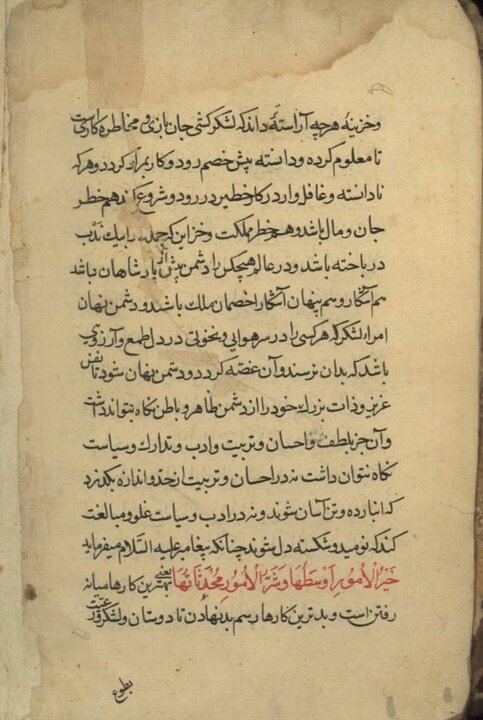 وخزینهٔ هرچه آراسته داند که لشکرکشی جان بازی و مخاطره کاریست
تا معلوم کرده و دانسته پیش خصم رود و کار بمراد کردد و هرکه
نادانسته و غافل وارد در کار خطیر در رود و شروع کند هم خطر
جان و مال باشد و هم خطر مملکت و خزاین که جمله را بیک ندب
در باخته باشد و در عالم هیچکس را دشمن بیش از پادشاهان باشد
هم آشکار و هم پنهان آشکارا خصمان ملک باشد و دشمن پنهان
امراء لشکر که هرکسی را در سر هوایی و نخوتی در دل طمع و آرزوی
باشد که بدان نرسند و آن غصه کردد و دشمن پنهان شود تا نفس
عزیز و ذات بزرك خود را از دشمن ظاهر و باطن نکاه بتواند داشت
و آن جز بلطف و احسان و تربیت و ادب و تدارك و سیاست
نکاه نتوان داشت نه در احسان و تربیت از حد و اندازه بکذرد
که انبارده و تن آسان شوند و نه در ادب و سیاست غلو و مبالغت
کند که نومید و شکسته دل شوند چنانکه پغامبر علیه السّلام میفرماید
خَیرُ الْاُمورِ اَوسَطُها وَ شَرُّ الْاُمورِ مُحْدَثاتُها یعنی بهترین کارها میانه
رفتن است و بدترین کارها رسم بد نهادن تا دوستان و لشکر و رعیّت
بطوع